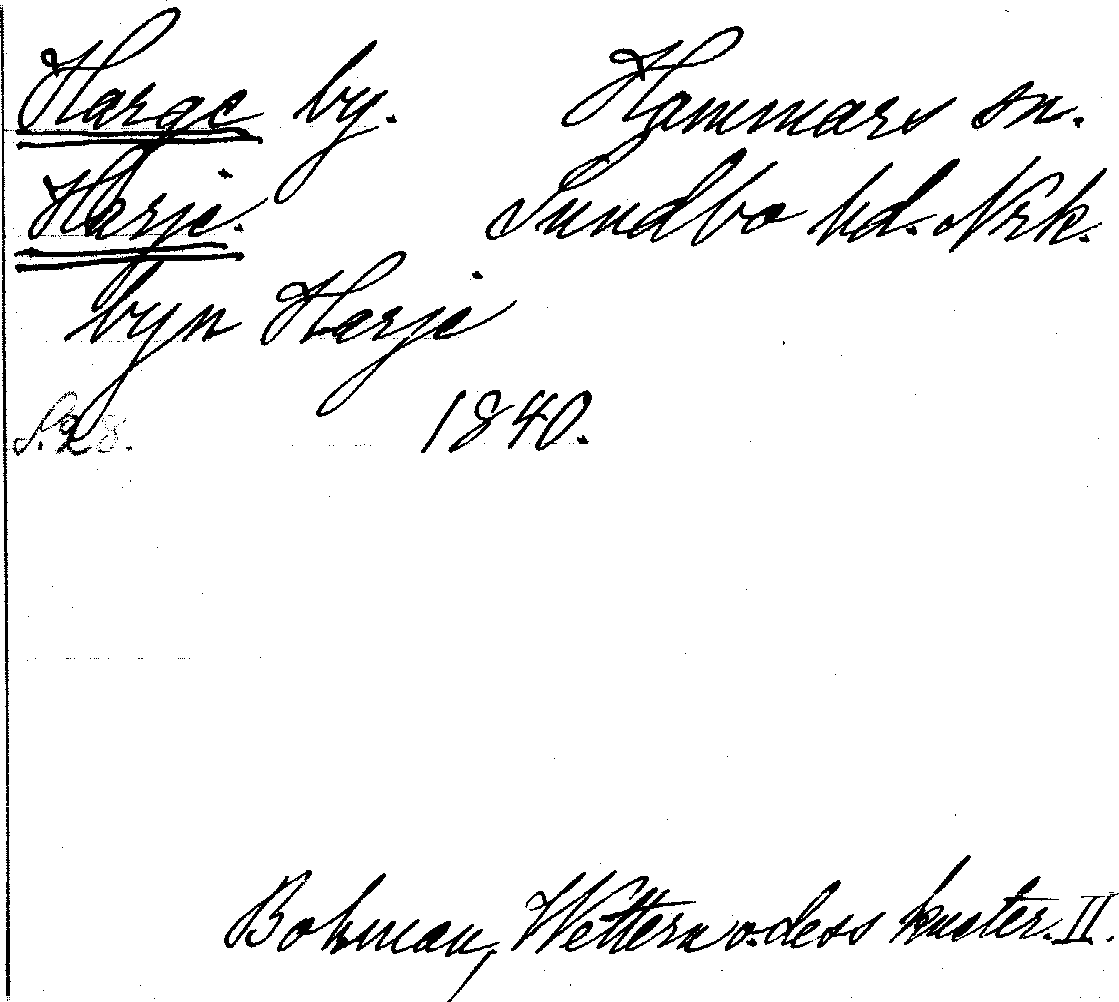 Harge by. Hammars sn.
Harje. Sundbo hd. Nrk.
byn Harje
S. 28. 1840.
Bohman, Wettern o. dess kuster. II.